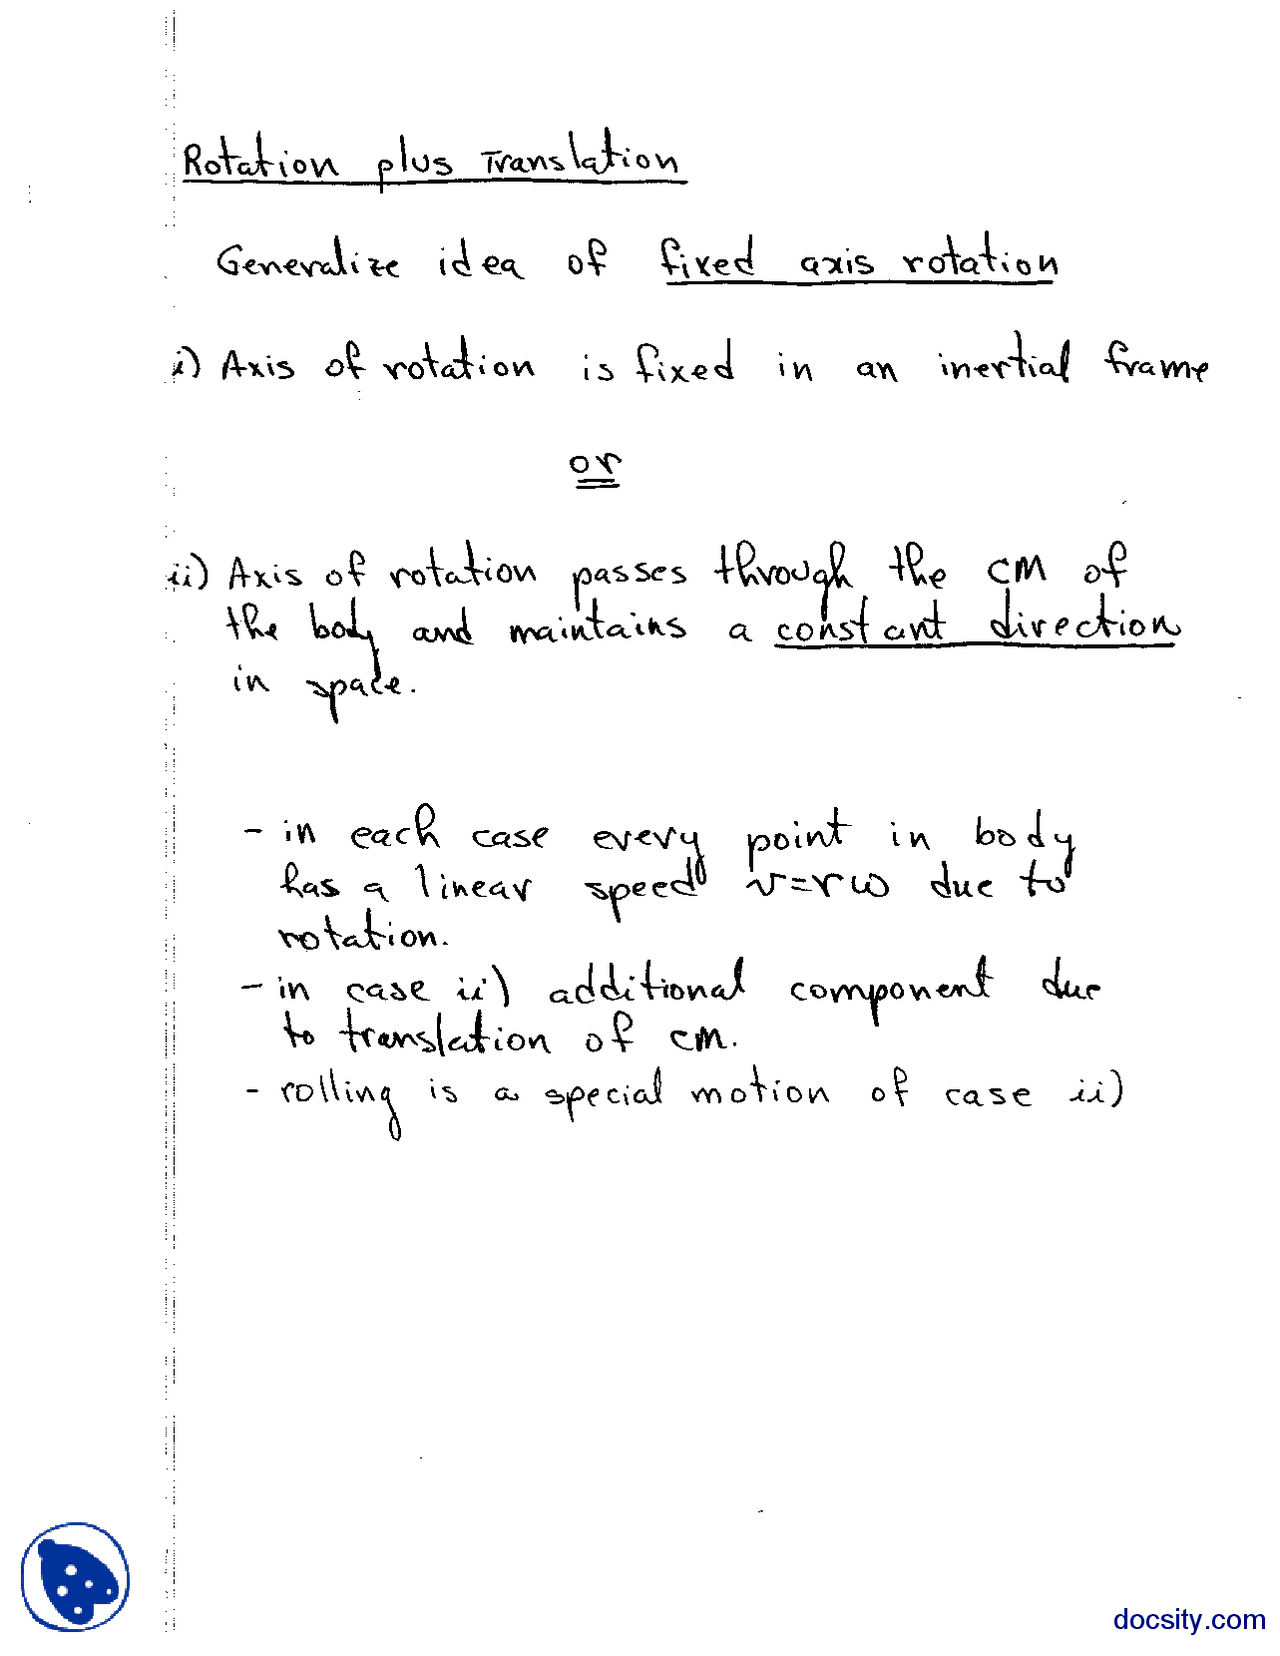 Rotation plus Translation
Generalize idea of fixed axis rotation
i) Axis of rotation is fixed in an inertial frame
or
ii) Axis of rotation passes through the CM of
the body and maintains a constant direction
in space.
- in each case every point in body
has a linear speed v=rω due to
rotation.
- in case ii) additional component due
to translation of CM.
- rolling is a special motion of case ii)
docsity.com